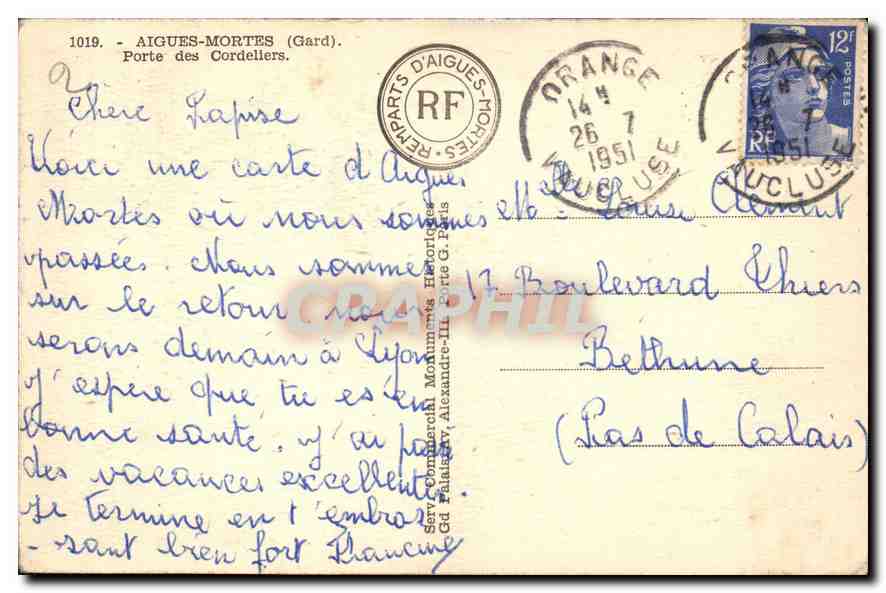 1019. - AIGUES-MORTES (Gard).
Porte des Cordeliers.
REMPARTS D'AIGUES-MORTES
RF
ORANGE
14 H
26 7
1951
VAUCLUSE
ORANGE
14 H
26 7
1951
VAUCLUSE
12F
POSTES
RF
Chère Lapise
Voici une carte d'Aigues
Mortes où nous sommes
passées. Nous sommes
sur le retour nous
serons demain à Lyon
J'espère que tu es en
bonne santé. J'ai passé
des vacances excellentes
je termine en t'embras
-sant bien fort Francine
Serv. Commercial Monuments Historiques
Gd Palais Av. Alexandre-III Porte G. Paris
Louise Clément
17 Boulevard Thiers
Béthune
(Pas de Calais)
CPAPHIL